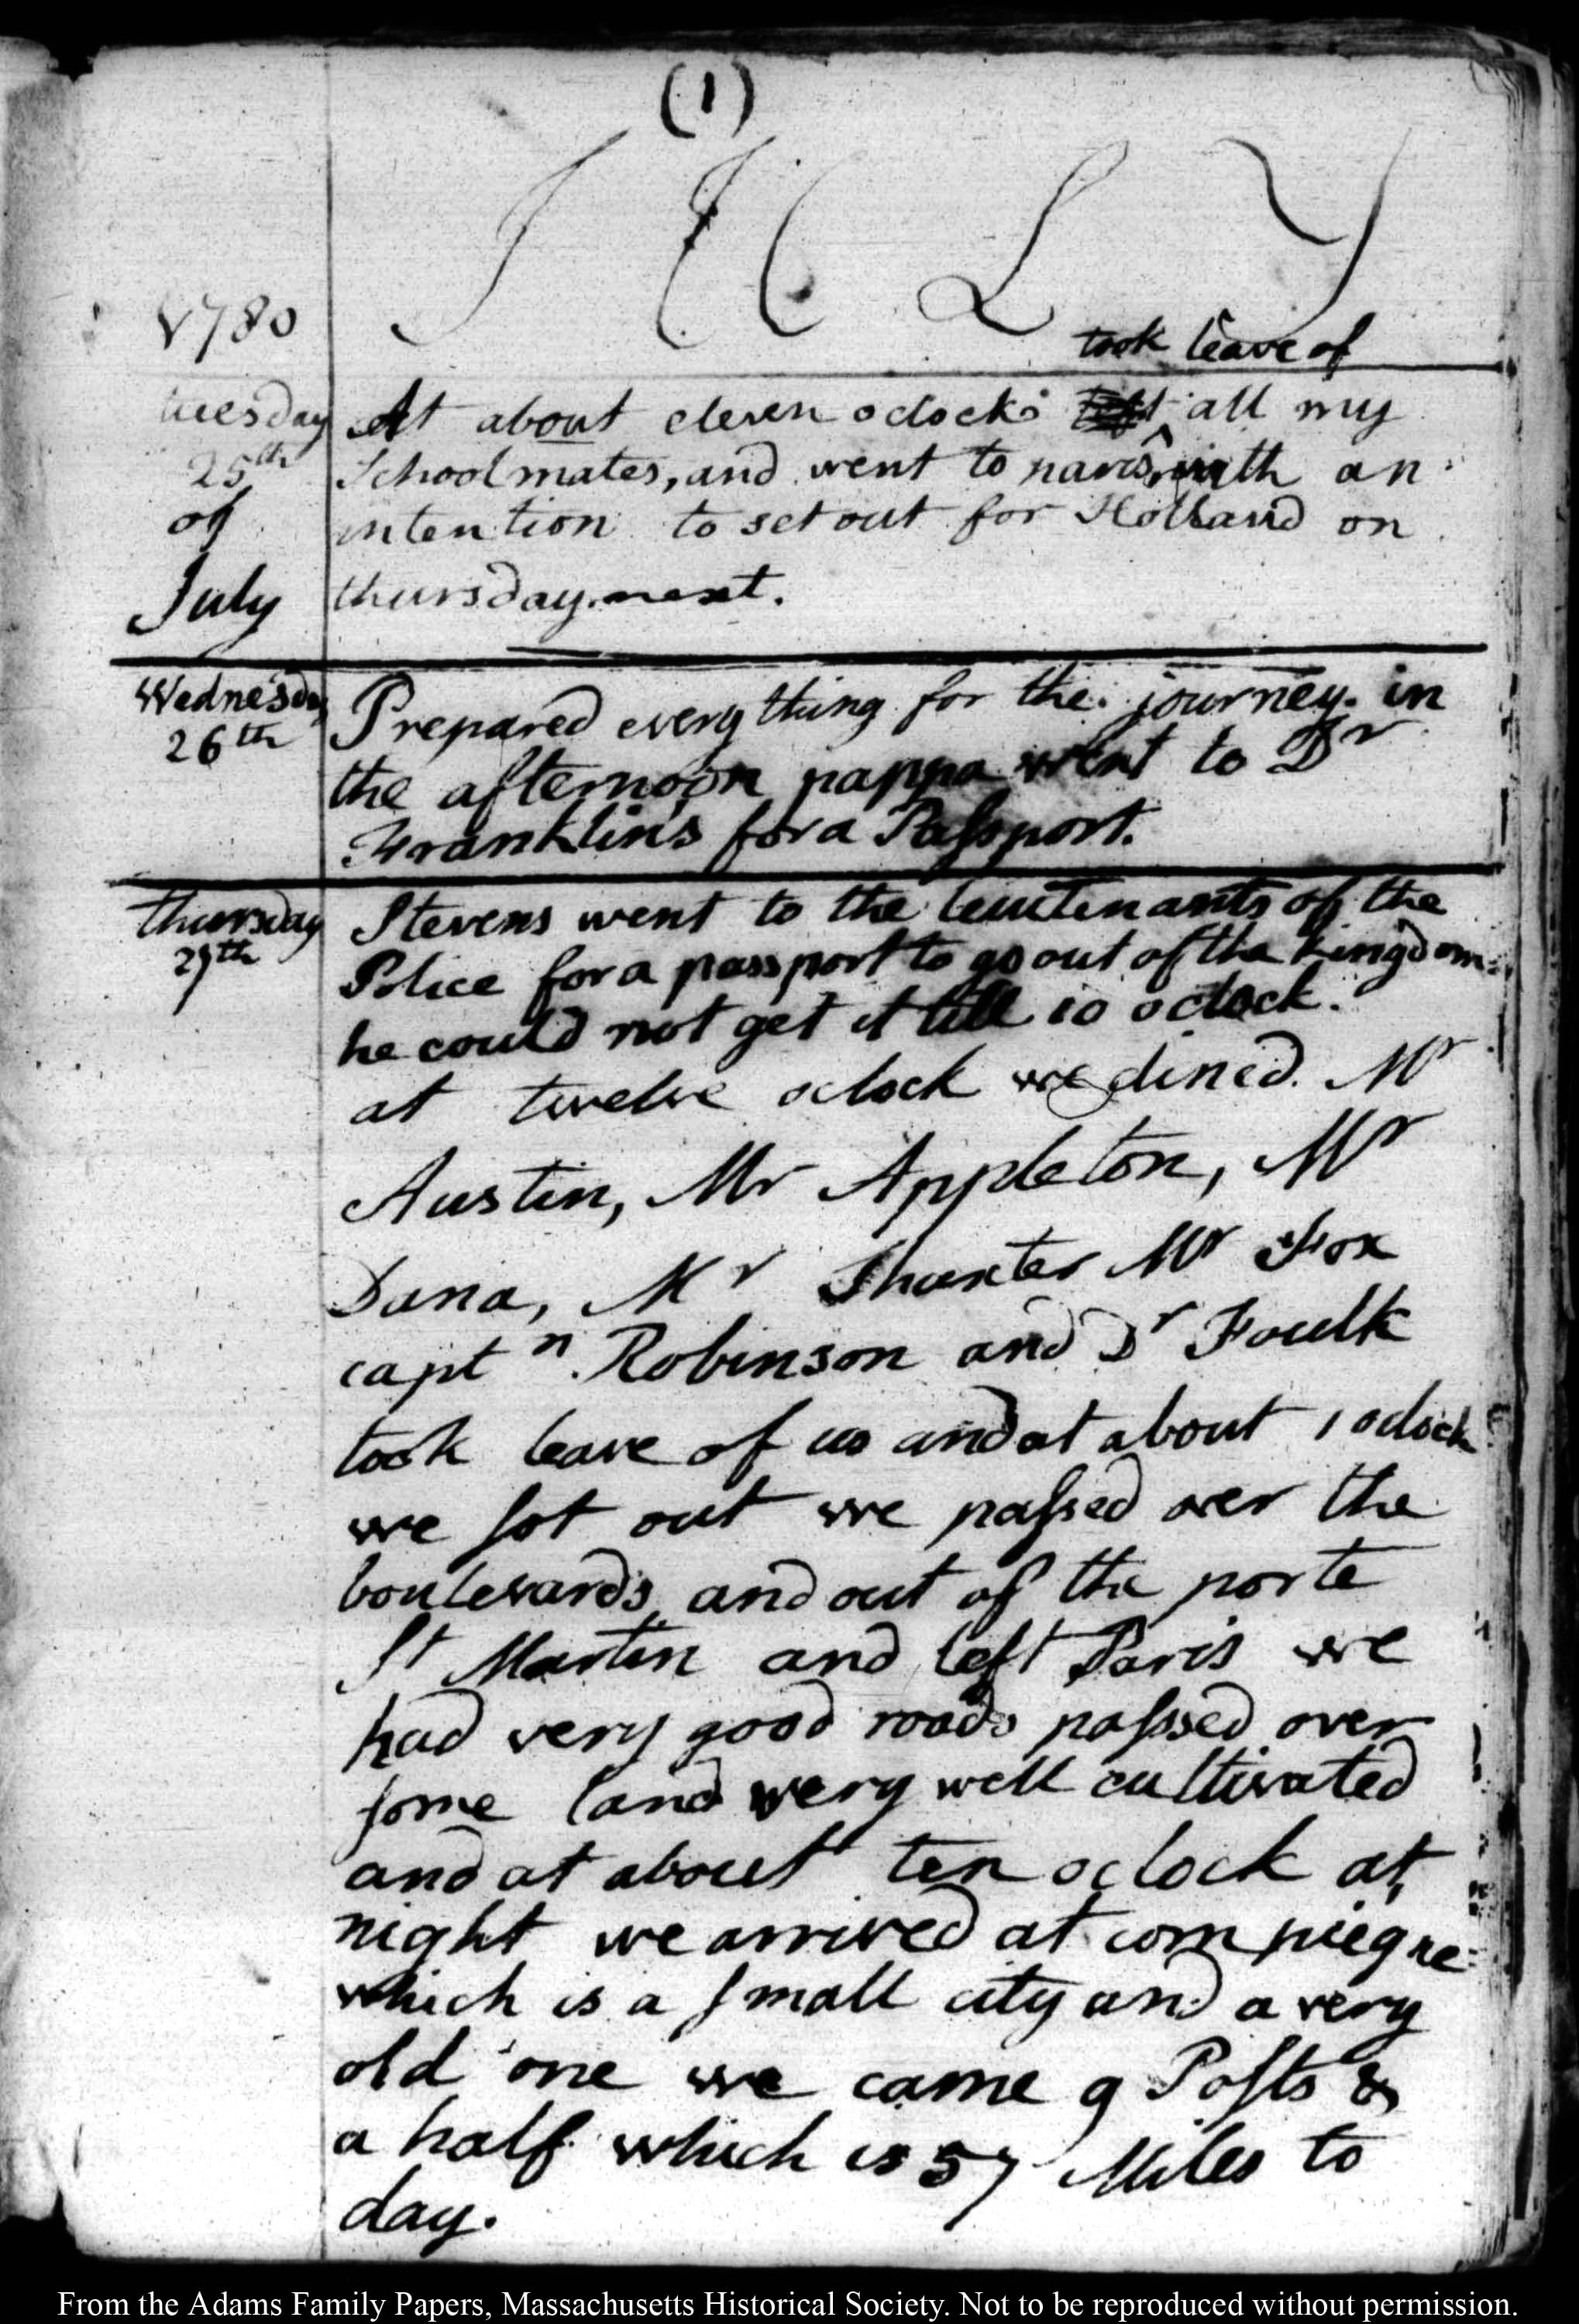 (1)
JULY
1780
took leave of
tuesday
25th
of
July
At about eleven oclock left all my
Schoolmates, and went to paris, with an
intention to set out for Holland on
thursday next.
Wednesday
26th
Prepared every thing for the journey. in
the afternoon pappa went to Dr
Franklin's for a Paſsport.
thursday
27th
Stevens went to the leiutenants of the
Police for a passport to go out of the kingdom
he could not get it till 10 oclock.
at twelve oclock we dined. Mr
Austin, Mr Appleton, Mr
Dana, Mr Thaxter Mr Fox
captn. Robinson and Dr Foulk
took leave of us and at about 1 oclock
we ſot out we paſsed over the
boulevards, and out of the porte
St Martin and left Paris we
had very good roads paſssed over
ſome land very well cultivated
and at about ten oclock at
night we arrived at compiegne
which is a ſmall city and a very
old one we came 9 Poſts &
a half which is 57 Miles to
day.
From the Adams Family Papers, Massachusetts Historical Society. Not to be reproduced without permission.